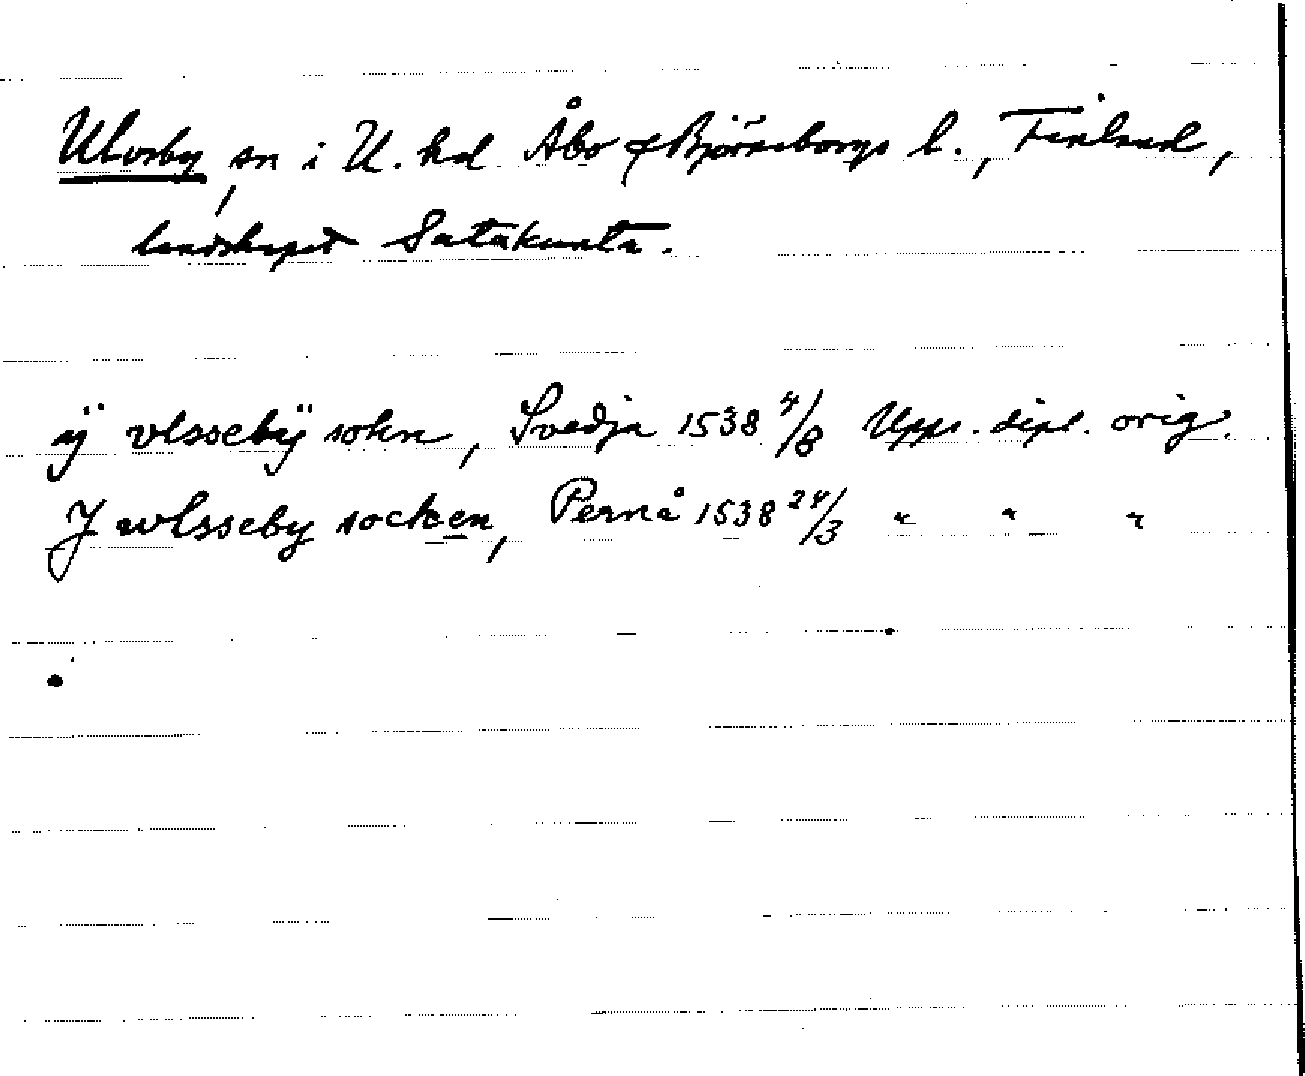 Ulvsby, sn i U. hd Åbo & Björneborgs l., Finland,
landskapet Satakunta.
ÿ vlssebÿ sokn, Svedja 1538 4/8 Upps. dipl. orig.
J wlsseby socken, Pernå 1538 24/3 " " "